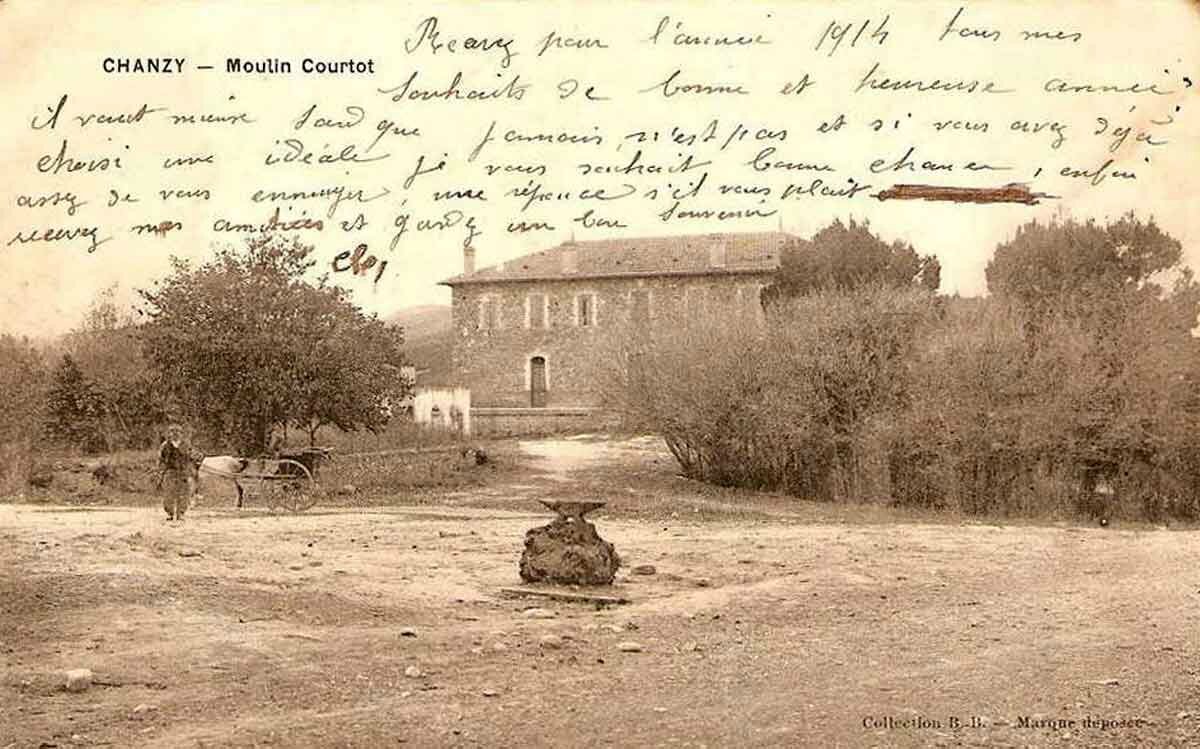 CHANZY — Moulin Courtot
Recevez pour l'année 1914 tous mes
souhaits de bonne et heureuse année
il vaut mieux tard que jamais, n'est pas et si vous avez déjà
choisi une idéale je vous souhait bonne chance, enfin
assez de vous ennuyer, une réponce s'il vous plait
recevez mes amitiés et gardez un bon souvenir
Collection B.-B. — Marque déposée